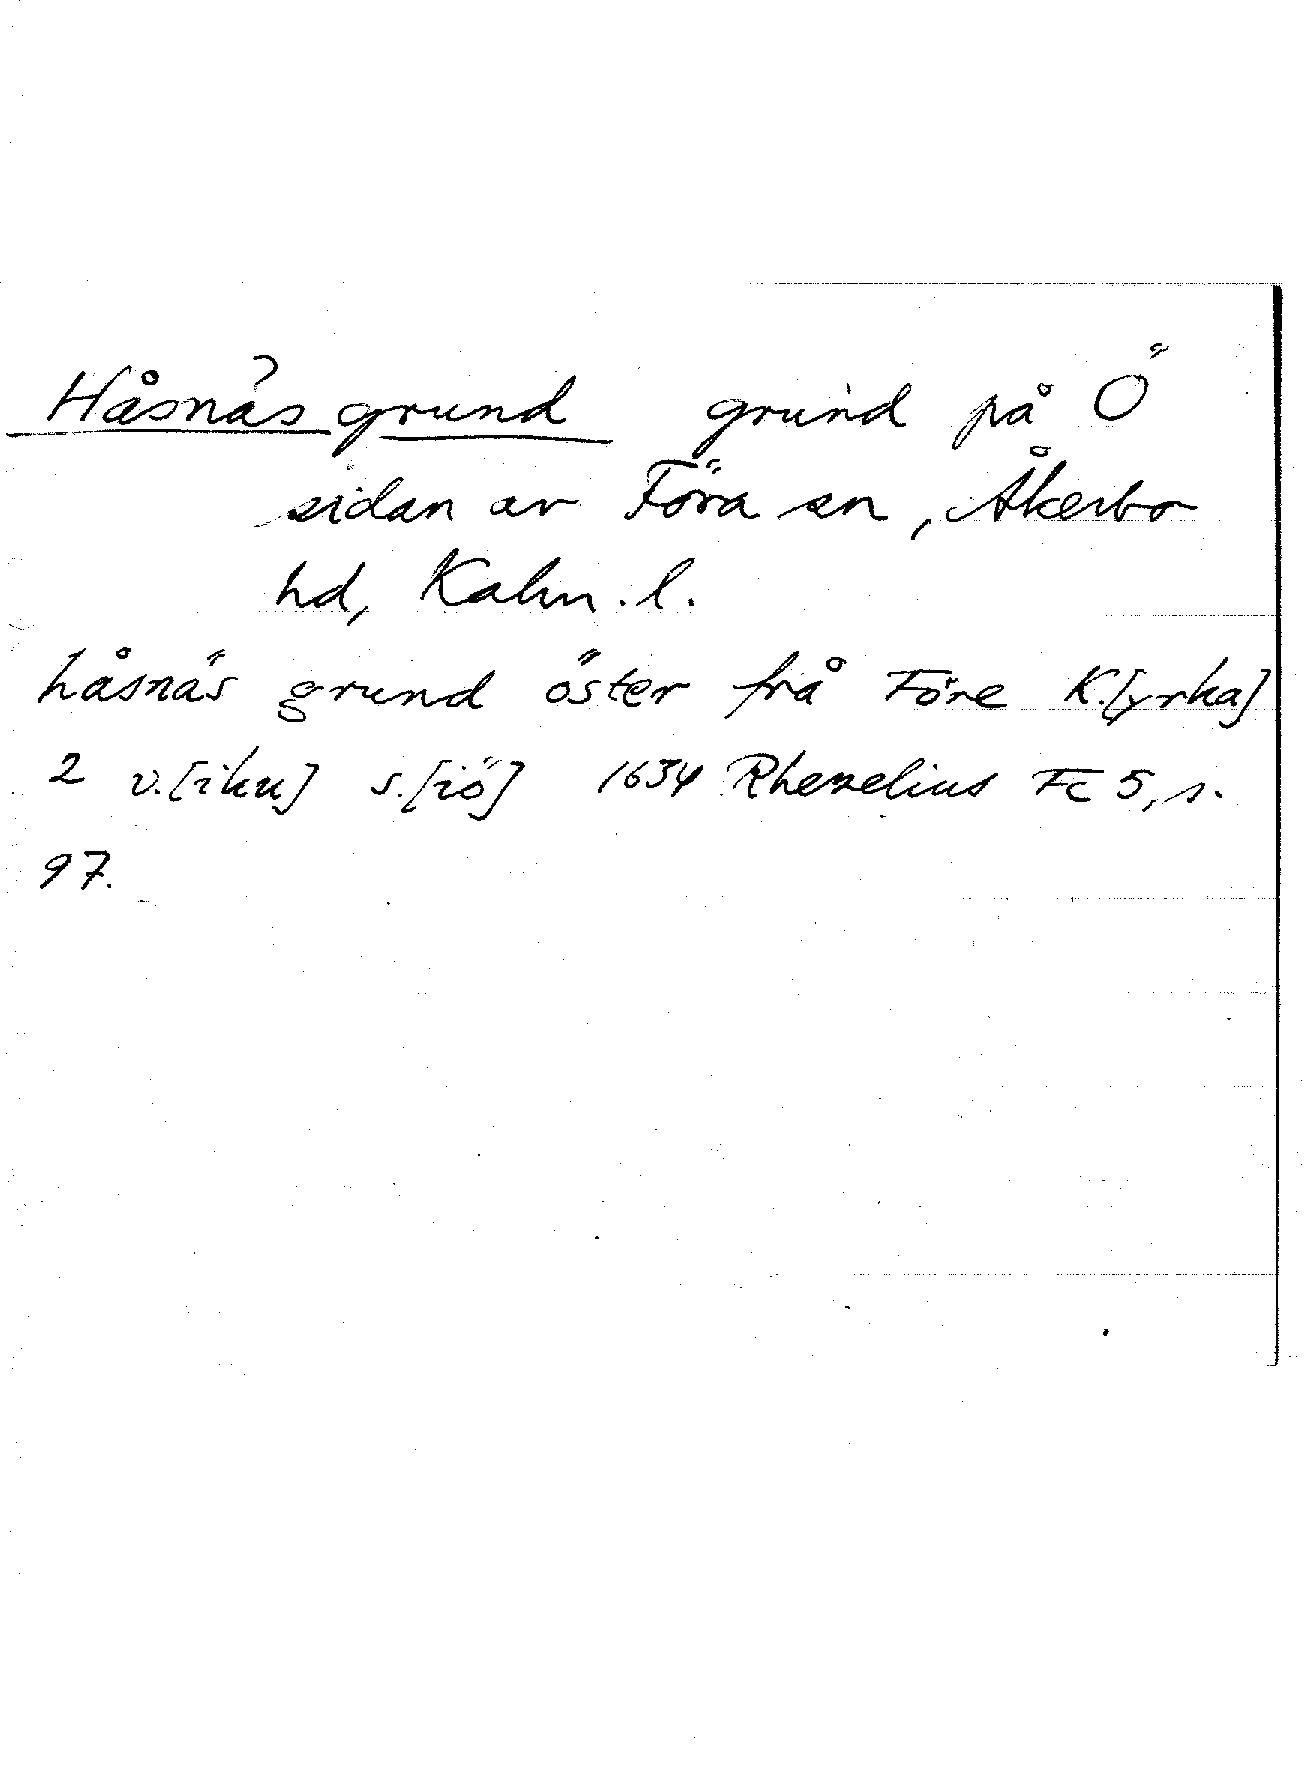 Håsnäs grund grund på Ö
sidan av Föra sn, Åkerbo
hd, Kalm. l.
håsnäs grund öster frå Före K.[yrka]
2 v.[iku] s.[iö] 1634 Rhezelius Fc 5, s.
97.